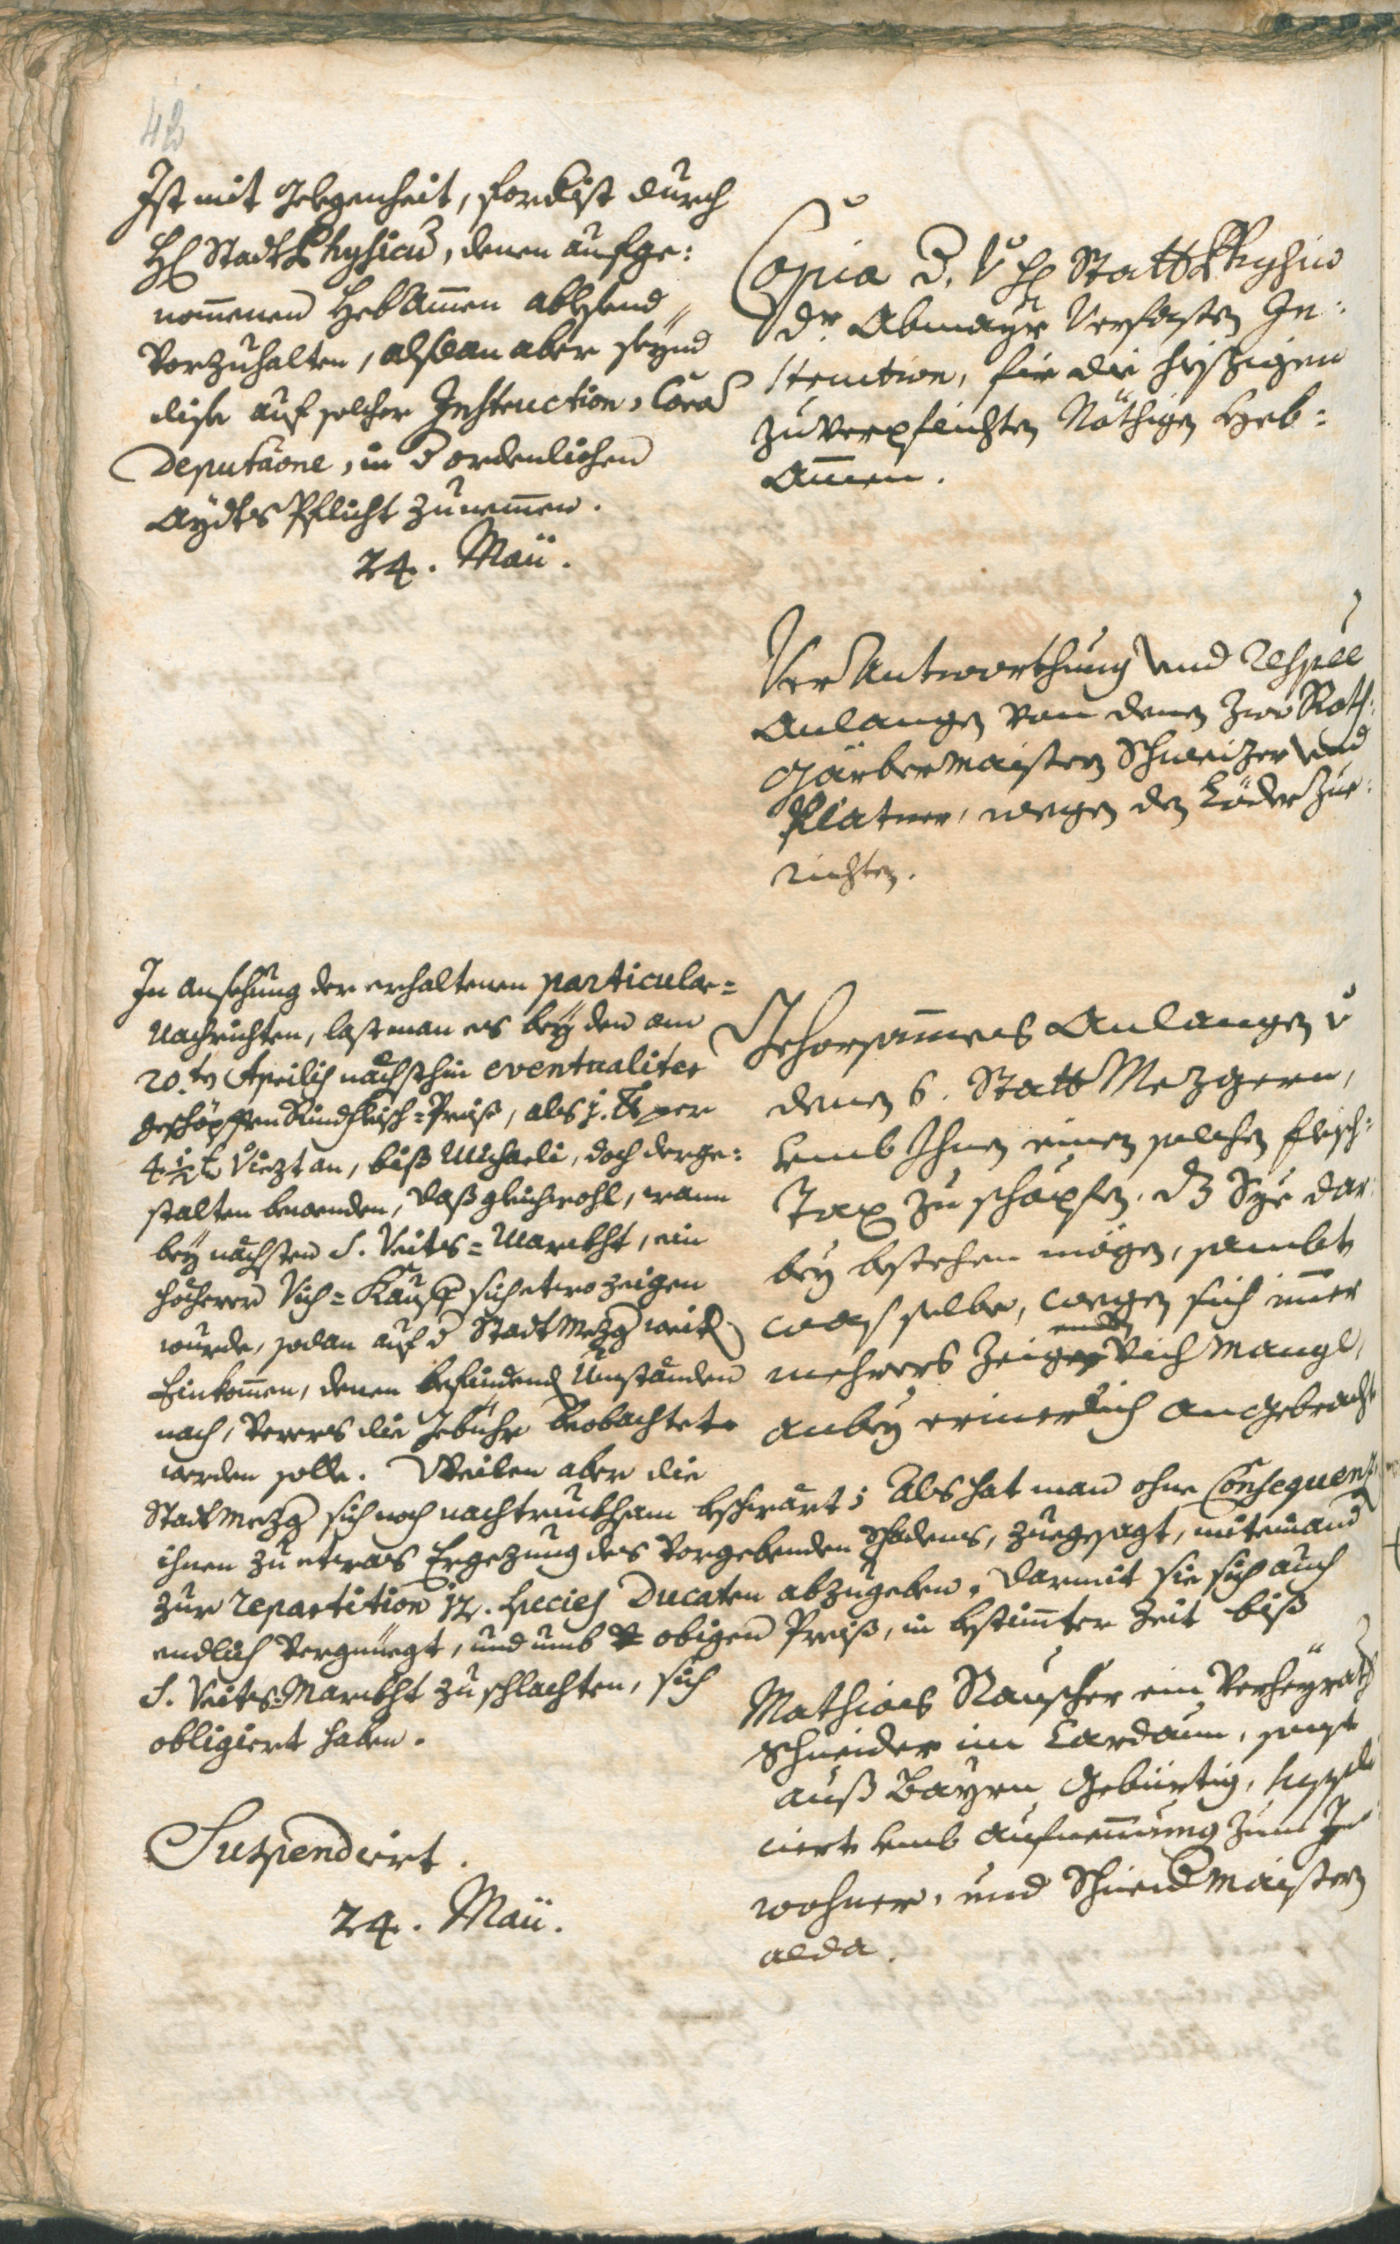 42
Ist mit Gelegenheit, fordist durch
H. Stadt Physicum, denen aufge:
nommenen Hebammen ablesend
vorzuhalten, alsdan aber seynd
dise auf solcher Instruction, Corā
Deputāone, in d ordenlichen
Aydts Pflicht zunemmen.
24. Maii.
Copia B. V. H. Statt Physico
Dr. Abmayr verfasten In:
struction, für die hießigen
zuverpflichten Nöthigen Heb:
Ammen.
Ver Antworthung und respēe
Anlangen von denen zwo Roth:
gärbermaistern Schweizer und
Platner, wegen den Löder zue:
richten.
In Ansehung der erhaltenen particular=
Nachrichten, last man es bey den am
20.ten Aprilis nächsthin eventualiter
geschöpfften Rindfleisch=Preiß, als j. ℔ per
4½ x Viezt an, biß Michaeli, doch derge:
stalten bewenden, daß gleichwohl, wann
bey nächsten S. Veits=Marckht, ein
höcherer Vich=Kauff sich etwo zeigen
wurde, sodan auf d Stadt Mezg weiters
Einkommen, denen befindend Umständen
nach, verers die Gebühr beobachtet
werden solle. Weilen aber die
Stadt Mezg sich noch nachtruckhsam beschwärt; Als hat man ohne Consequenz
ihnen zu etwas Ergezung des vorgebenden Schadens, zuegesagt, miteinand
zur repartition 12. species Ducaten abzugeben, darmit sie sich auch
endlich vergnüegt, und umb obigen Preiß, in bestimmter Zeit biß
S. Veits Marckht zu schlachten, sich
obligiert haben.
Gehorsammes Anlangen v
denen 6. Statt Mezgern,
umb Ihnen einen solchen fleisch:
Tax zu schöpfen, dz Sye dar
bey bestehen mögen, sambt
was selbe, wegen sich immer
mehrers zeigenden Vich Mangl,
anbey erinerlich angebracht
Mathias Rauscher ein verheyrath
Schneider im Cardaun, sonst
auß Bayrn gebürtig, suppli
ciert umb aufnemmung zum In
wohner, und Schneidmaistern
alda.
Suspendiert.
24. Maii.